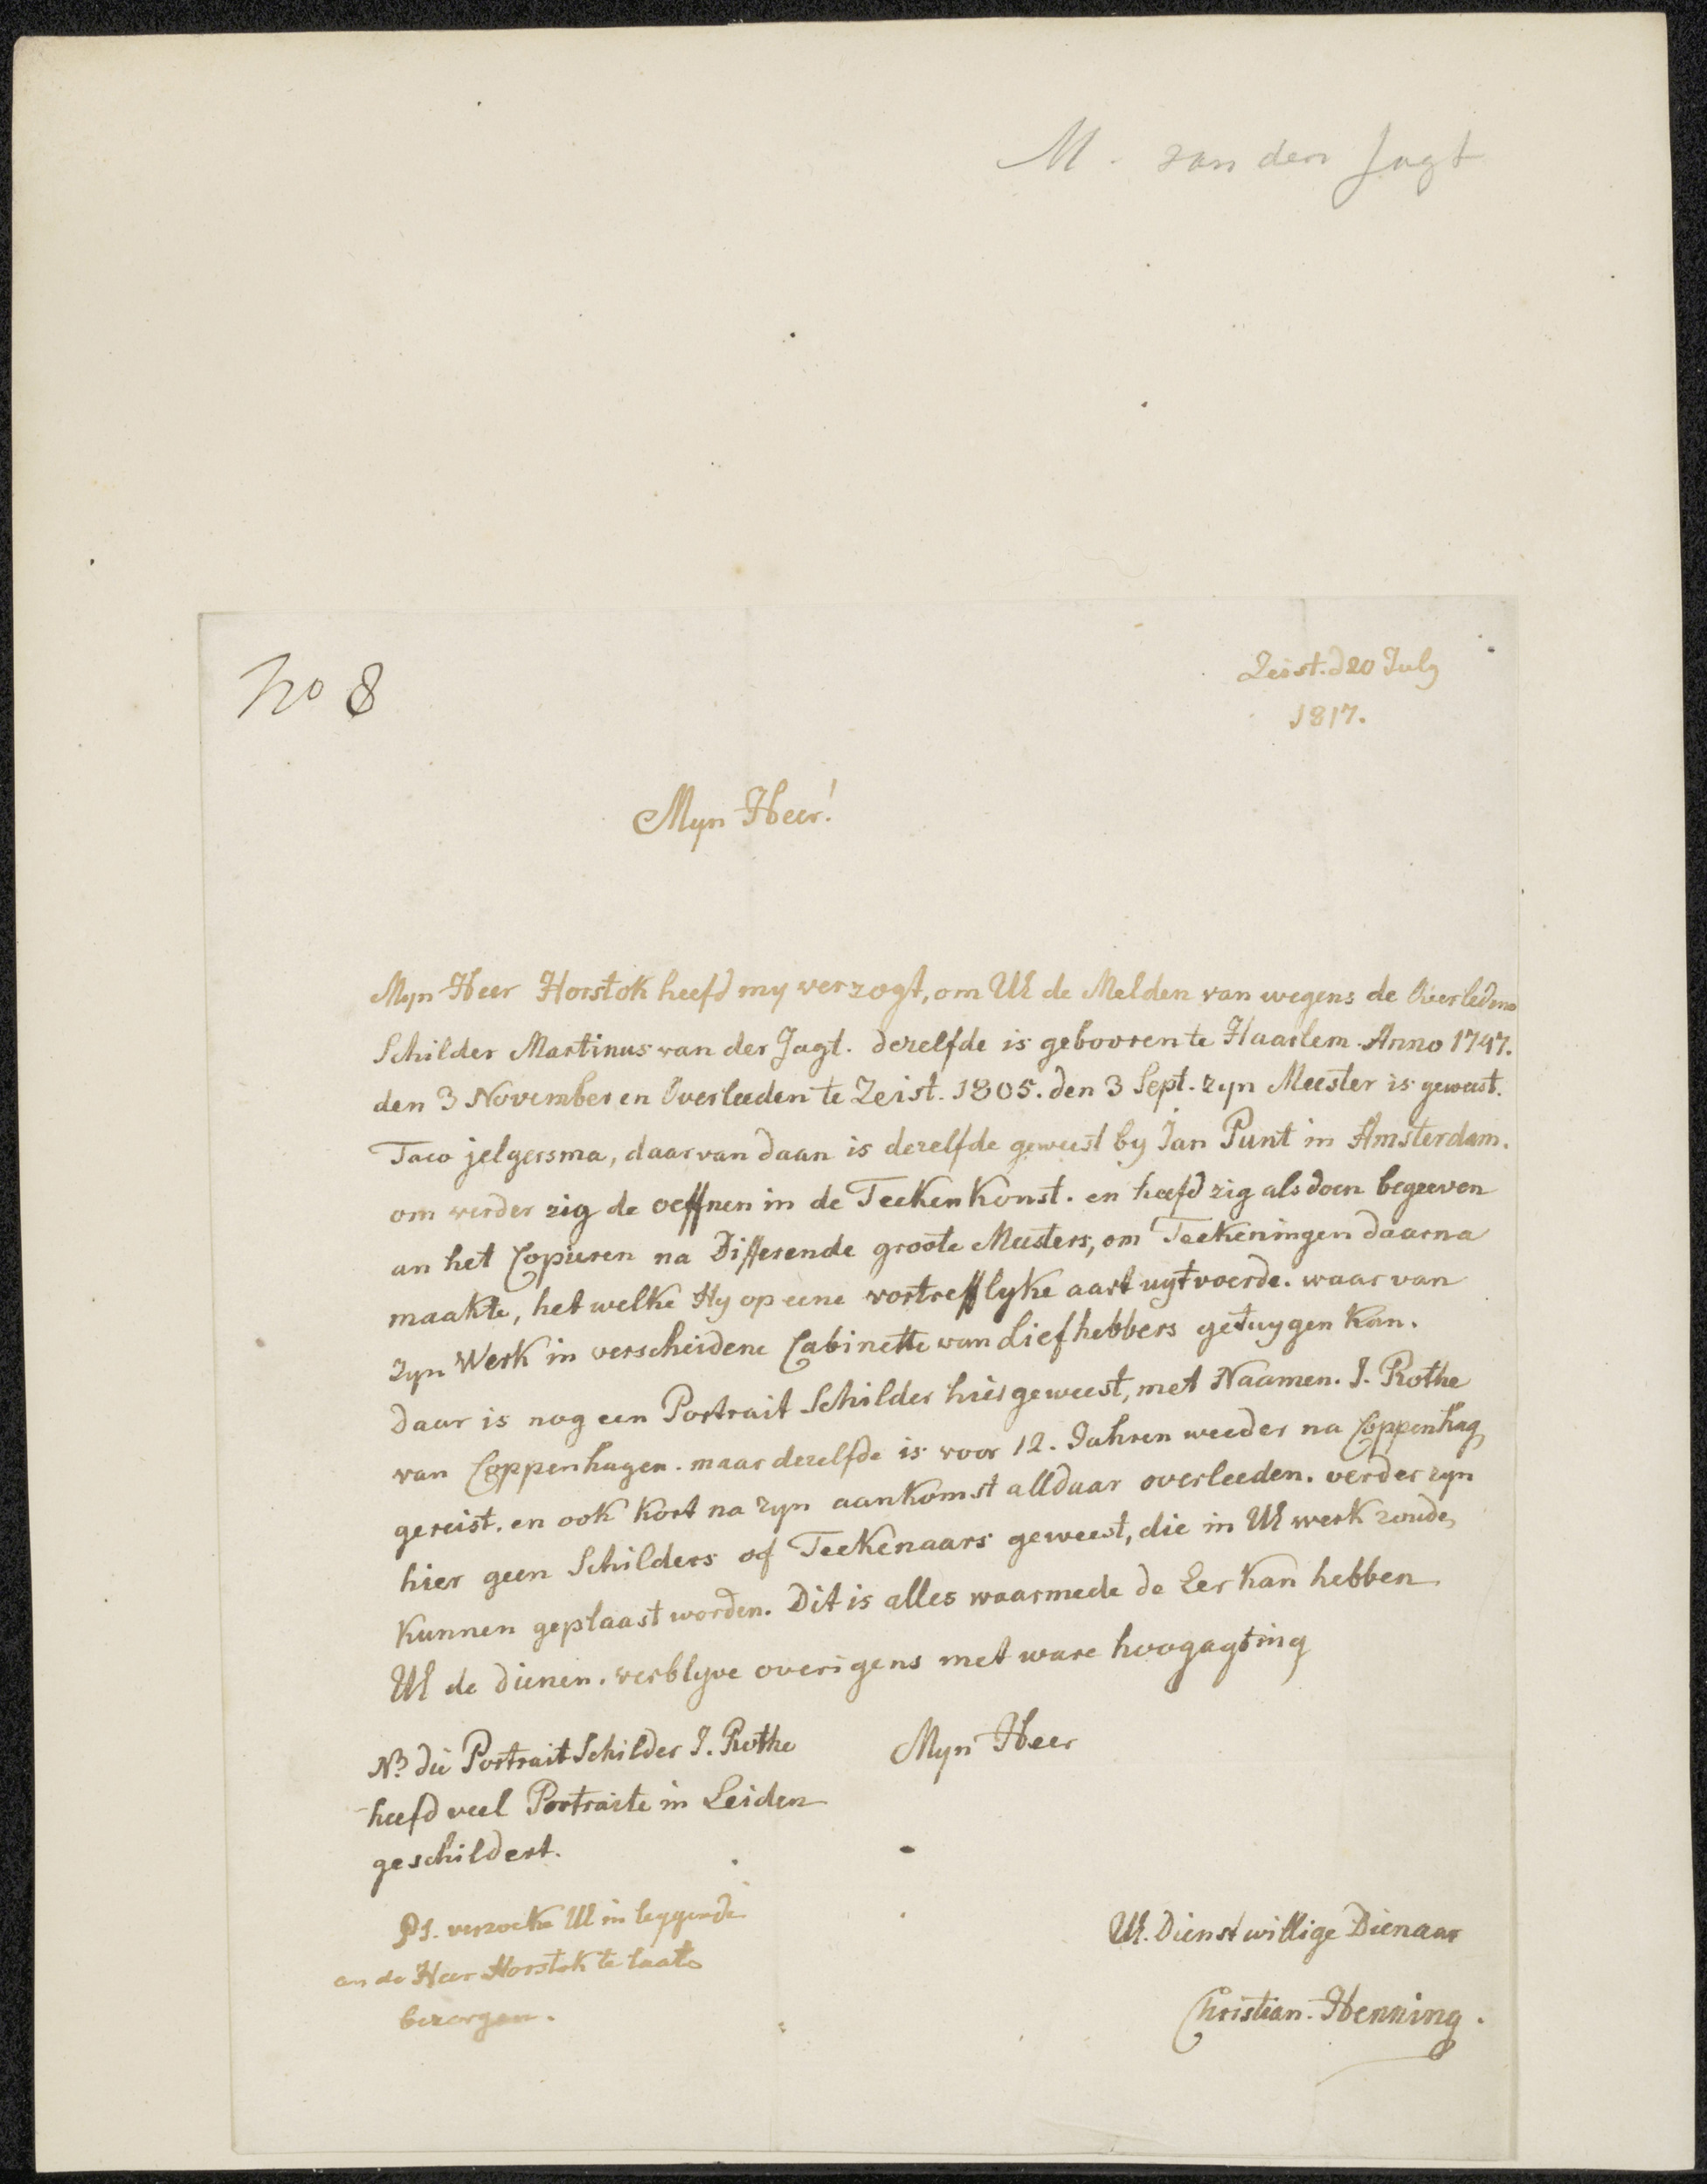 M. van der Jagt
No 8
Zeist. d 20 July
1817.
Myn Heer!
Myn Heer Horstok heefd my verzogt, om UE de Melden van wegens de Overledene
Schilder Martinus van der Jagt. dezelfde is gebooren te Haarlem. Anno 1747.
den 3 November en Overleeden te Zeist. 1805. den 3 Sept. zyn Meester is geweest.
Taco jelgersma, daar van daan is dezelfde geweest by Jan Punt in Amsterdam.
om verder zig de oeffnen in de Teeken Konst. en heefd zig als doen begeeven
an het Copieren na Differende groote Meesters, om Teekeningen daarna
maakte, het welke Hy op eene vortrefflyke aart uytvoerde. waar van
zyn Werk in verscheidene Cabinette van Liefhebbers getuygen Kan.
daar is nog een Portrait Schilder hier geweest, met Naamen. J. Rothe
van Coppenhagen. maar dezelfde is voor 12. Jahren weeder na Coppenhag,
gereist. en ook Kort na zyn aankomst alldaar overleeden. verder zyn
hier geen Schilders of Teekenaars geweest, die in UE werk zoude,
Kunnen geplaast worden. Dit is alles waarmede de Eer Kan hebben
UE de dienen. verblyve overigens met ware hoogagting
Myn Heer
NB. die Portrait Schilder J. Rothe
heefd veel Portraite in Leiden
geschildert.
PS. verzoeke UE in leggende
an de Heer Horstok te laate
bezorgen.
UE. Dienstwillige Dienaar
Christian. Henning.